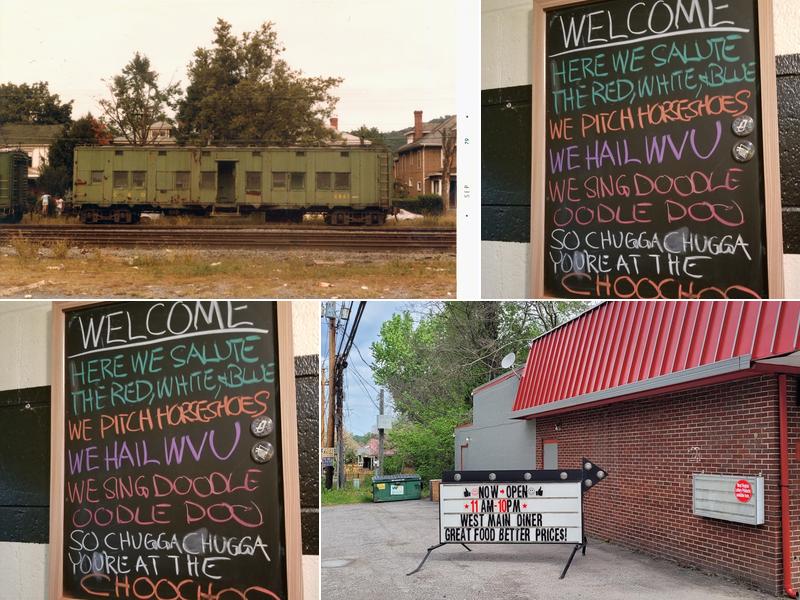 SEP 79
WELCOME
HERE WE SALUTE
THE RED, WHITE, & BLUE
WE PITCH HORSESHOES
WE HAIL WVU
WE SING DOODLE
OODLE DOO
SO CHUGGA CHUGGA
YOURE AT THE
CHOOCHOO
WELCOME
HERE WE SALUTE
THE RED, WHITE, & BLUE
WE PITCH HORSESHOES
WE HAIL WVU
WE SING DOODLE
OODLE DOO
SO CHUGGA CHUGGA
YOURE AT THE
CHOOCHOO
NOW OPEN
11 AM-10PM
WEST MAIN DINER
GREAT FOOD BETTER PRICES!